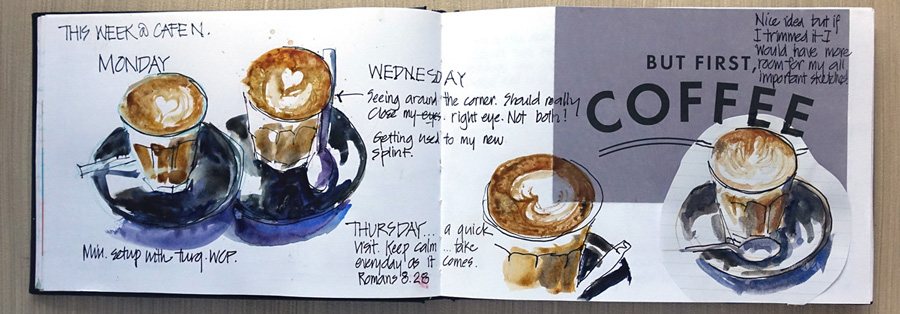 THIS WEEK @ CAFE N.
MONDAY
Min. setup with Turq. WCP.
WEDNESDAY
Seeing around the corner. Should really
Close my eyes. right eye. Not both!
Getting used to my new
Splint.
THURSDAY... a quick
visit. Keep calm ... take
everyday as it comes.
Romans 8:28
BUT FIRST,
COFFEE
Nice idea but if
I trimmed it I
would have more
room for my all
important sketches